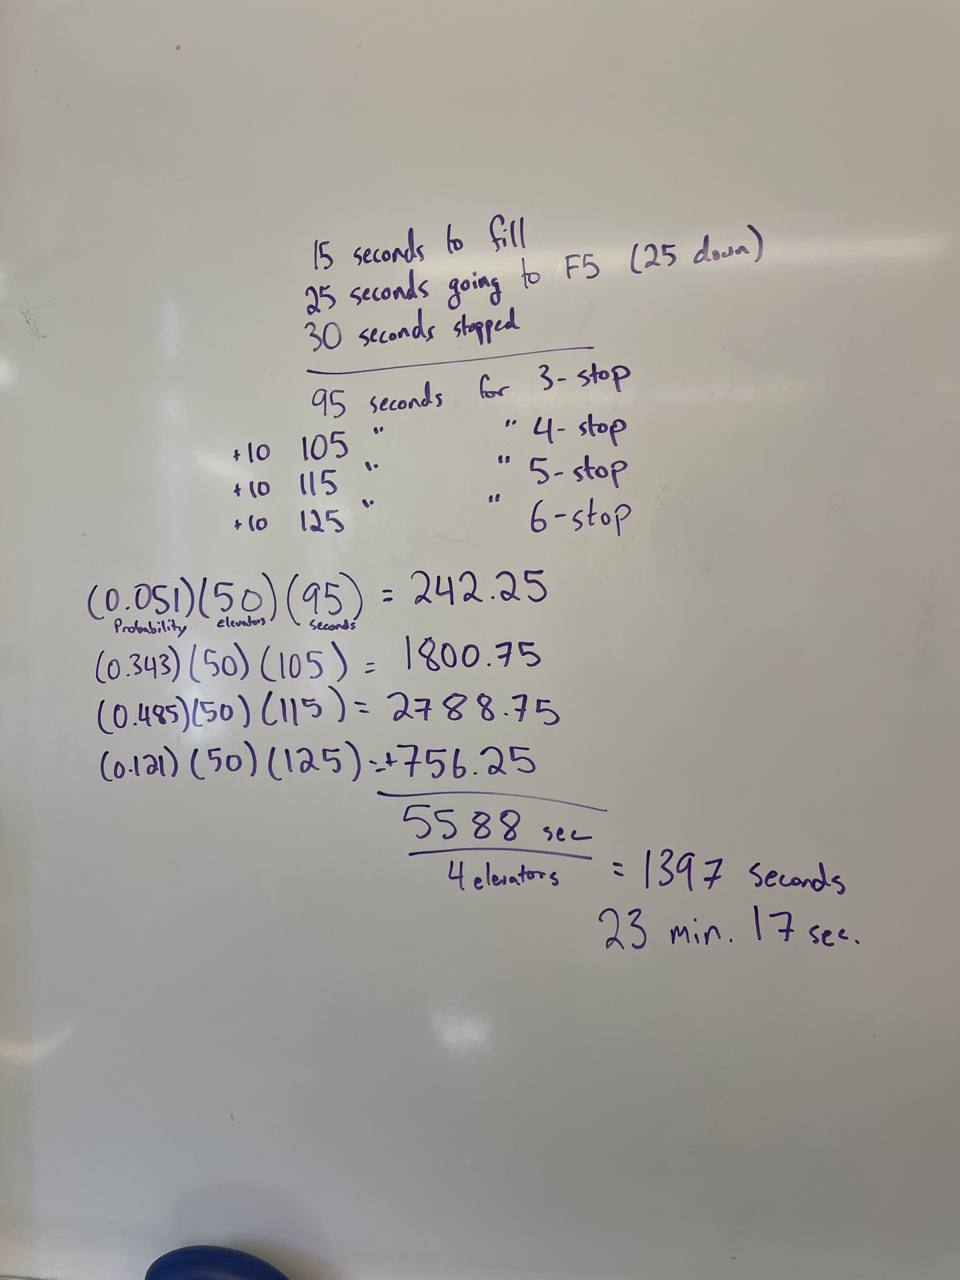 15 seconds to fill
25 seconds going to F5 (25 down)
30 seconds stopped
95 seconds for 3-stop
+10 105 " " 4-stop
+10 115 " " 5-stop
+10 125 " " 6-stop
(0.051)(50)(95) = 242.25
Probability elevators seconds
(0.343)(50)(105) = 1800.75
(0.485)(50)(115) = 2788.75
(0.121)(50)(125) = +756.25
5588 sec
4 elevators = 1397 seconds
23 min. 17 sec.